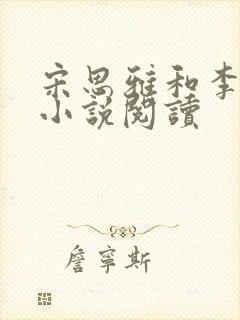 宋思雅和李
小説閱讀
詹寧斯